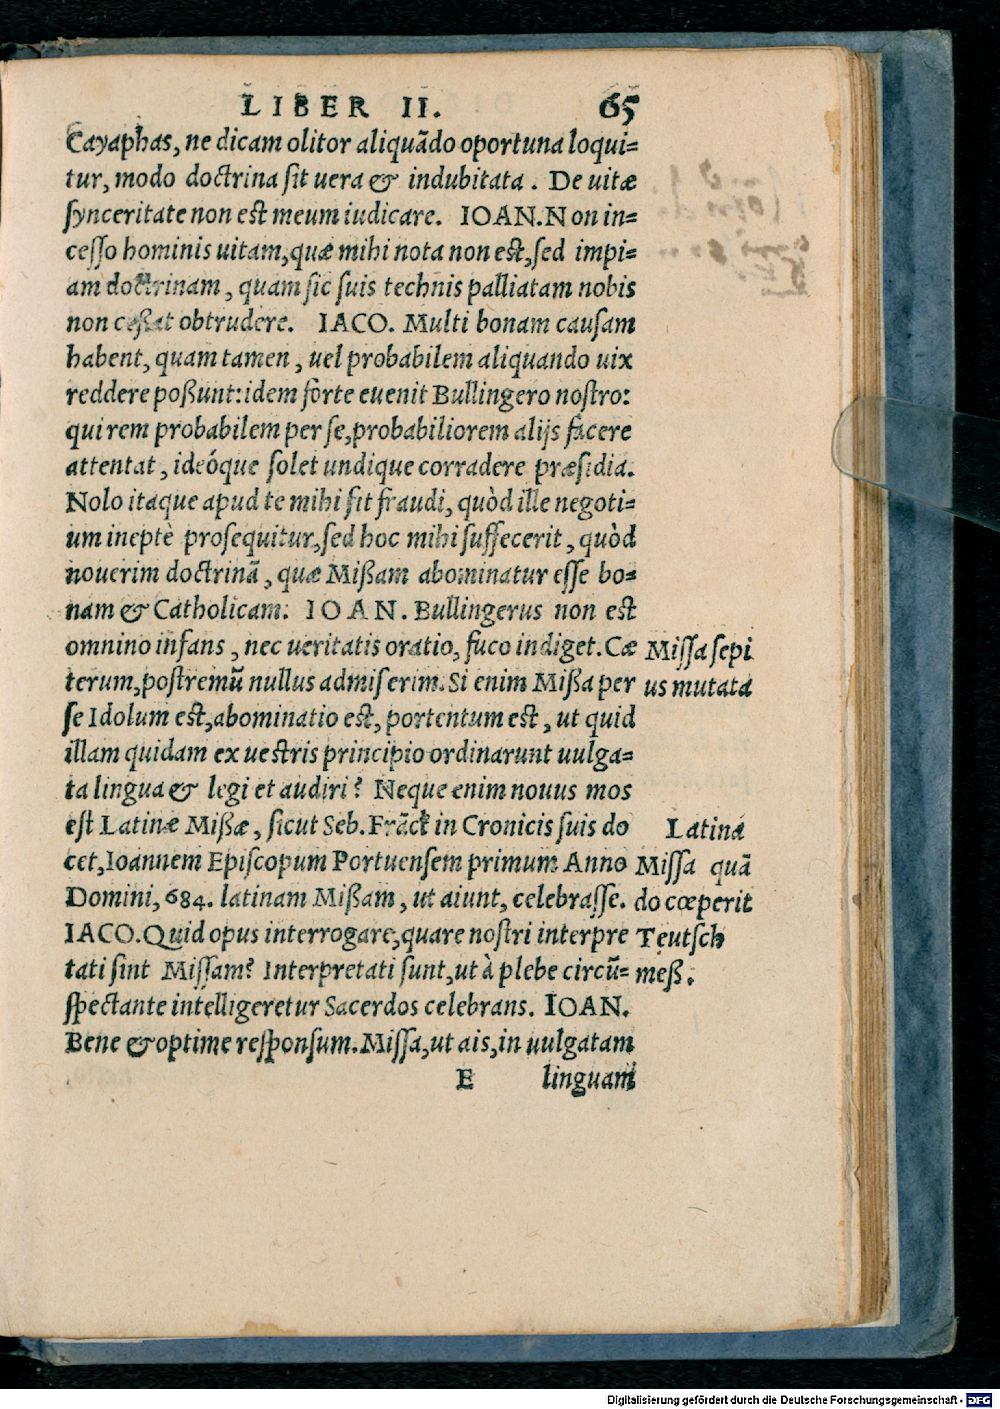 LIBER II. 65
Cayaphas, ne dicam olitor aliquãdo oportuna loqui=
tur, modo doctrina sit uera & indubitata. De uitæ
synceritate non est meum iudicare. IOAN. Non in=
cesso hominis uitam, quæ mihi nota non est, sed impi=
am doctrinam, quam sic suis technis palliatam nobis
non ceßat obtrudere. IACO. Multi bonam causam
habent, quam tamen, uel probabilem aliquando uix
reddere poßunt: idem forte euenit Bullingero nostro:
qui rem probabilem per se, probabiliorem alijs facere
attentat, ideóque solet undique corradere præsidia.
Nolo itaque apud te mihi sit fraudi, quòd ille negoti=
um ineptè prosequitur, sed hoc mihi suffecerit, quòd
nouerim doctrinã, quæ Mißam abominatur esse bo=
nam & Catholicam. IOAN. Bullingerus non est
omnino infans, nec ueritatis oratio, fuco indiget. Cæ
terum, postremũ nullus admiserim. Si enim Mißa per
se Idolum est, abominatio est, portentum est, ut quid
illam quidam ex uestris principio ordinarunt uulga=
ta lingua & legi et audiri? Neque enim nouus mos
est Latinæ Mißæ, sicut Seb. Frãck in Cronicis suis do
cet, Ioannem Episcopum Portuensem primum Anno
Domini, 684. latinam Mißam, ut aiunt, celebrasse.
IACO. Quid opus interrogare, quare nostri interpre
tati sint Missam? Interpretati sunt, ut à plebe circũ=
spectante intelligeretur Sacerdos celebrans. IOAN.
Bene & optime responsum. Missa, ut ais, in uulgatam
E linguam
Missa sepi
us mutata
Latina
Missa quã
do cœperit
Teutsch
meß.
Digitalisierung gefördert durch die Deutsche Forschungsgemeinschaft - DFG